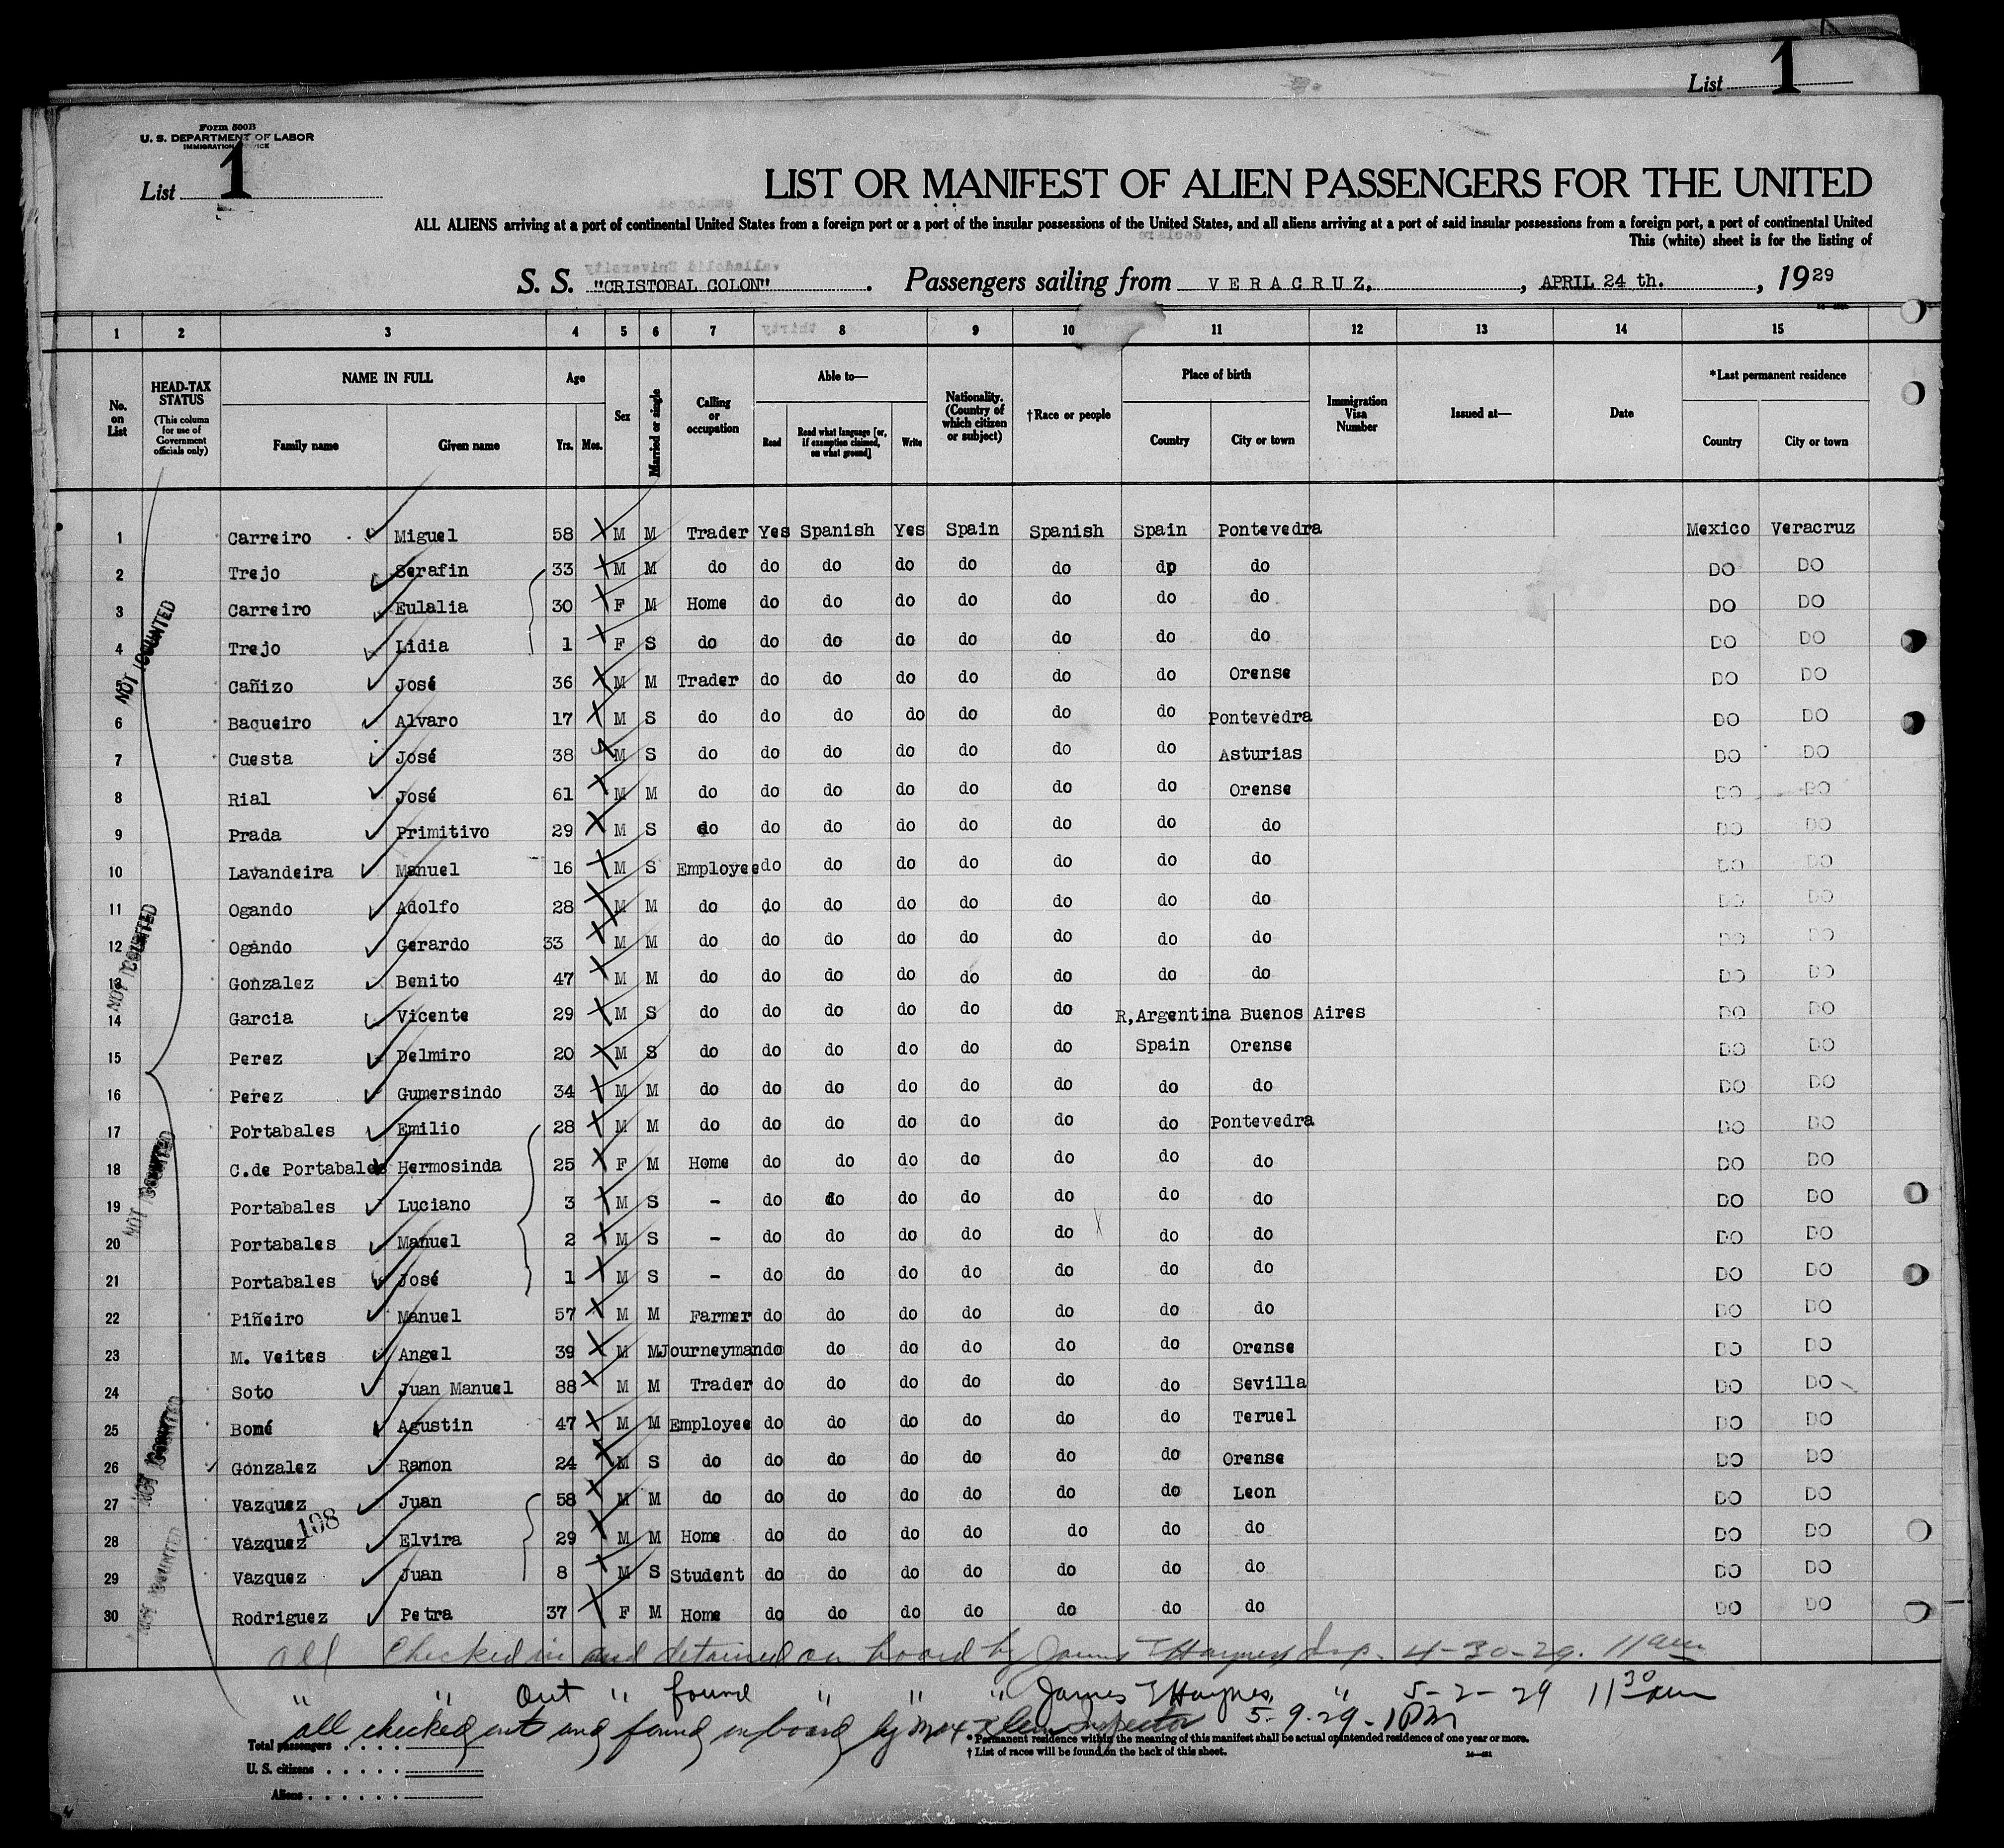 List 1
Form 500B
U. S. DEPARTMENT OF LABOR
IMMIGRATION SERVICE
List 1
LIST OR MANIFEST OF ALIEN PASSENGERS FOR THE UNITED
ALL ALIENS arriving at a port of continental United States from a foreign port or a port of the insular possessions of the United States, and all aliens arriving at a port of said insular possessions from a foreign port, a port of continental United
This (white) sheet is for the listing of
S. S. "CRISTOBAL COLON" . Passengers sailing from VERACRUZ, , APRIL 24 th. , 1929
1 2 3 4 5 6 7 8 9 10 11 12 13 14 15
No. on List HEAD-TAX STATUS (This column for use of Government officials only) NAME IN FULL Family name Given name Age Yrs. Mos. Sex Married or single Calling or occupation Able to— Read Read what language [or, if exemption claimed, on what ground] Write Nationality. (Country of which citizen or subject) †Race or people Place of birth Country City or town Immigration Visa Number Issued at— Date *Last permanent residence Country City or town
1 Carreiro Miguel 58 M M Trader Yes Spanish Yes Spain Spanish Spain Pontevedra Mexico Veracruz
2 Trejo Serafin 33 M M do do do do do do do do DO DO
3 Carreiro Eulalia 30 F M Home do do do do do do do DO DO
4 Trejo Lidia 1 F S do do do do do do do do DO DO
5 Cañizo José 36 M M Trader do do do do do do Orense DO DO
6 Baqueiro Alvaro 17 M S do do do do do do do Pontevedra DO DO
7 Cuesta José 38 M S do do do do do do do Asturias DO DO
8 Rial José 61 M M do do do do do do do Orense DO DO
9 Prada Primitivo 29 M S do do do do do do do do DO DO
10 Lavandeira Manuel 16 M S Employee do do do do do do do DO DO
11 Ogando Adolfo 28 M M do do do do do do do do DO DO
12 Ogando Gerardo 33 M M do do do do do do do do DO DO
13 Gonzalez Benito 47 M M do do do do do do do do DO DO
14 Garcia Vicente 29 M S do do do do do do R,Argentina Buenos Aires DO DO
15 Perez Delmiro 20 M S do do do do do do Spain Orense DO DO
16 Perez Gumersindo 34 M M do do do do do do do do DO DO
17 Portabales Emilio 28 M M do do do do do do do Pontevedra DO DO
18 C.de Portabales Hermosinda 25 F M Home do do do do do do do DO DO
19 Portabales Luciano 3 M S - do do do do do do do DO DO
20 Portabales Manuel 2 M S - do do do do do do do DO DO
21 Portabales José 1 M S - do do do do do do do DO DO
22 Piñeiro Manuel 57 M M Farmer do do do do do do do DO DO
23 M. Veites Angel 39 M M Journeyman do do do do do do Orense DO DO
24 Soto Juan Manuel 88 M M Trader do do do do do do Sevilla DO DO
25 Boné Agustin 47 M M Employee do do do do do do Teruel DO DO
26 Gonzalez Ramon 24 M S do do do do do do do Orense DO DO
27 Vazquez Juan 58 M M do do do do do do do Leon DO DO
198
28 Vazquez Elvira 29 M M Home do do do do do do do DO DO
29 Vazquez Juan 8 M S Student do do do do do do do DO DO
30 Rodriguez Petra 37 F M Home do do do do do do do DO DO
NOT COUNTED
NOT COUNTED
NOT COUNTED
NOT COUNTED
NOT COUNTED
All Checked in and detained on board by James T Haynes Insp. 4-30-29. 11am
" " Out " found " " " James T Haynes, " 5-2-29 11 30 am
all checked out and found on board by Max Inspector 5-9-29-1PM
Total passengers . . . .
U. S. citizens . . . . .
Aliens . . . . . .
* Permanent residence within the meaning of this manifest shall be actual or intended residence of one year or more.
† List of races will be found on the back of this sheet.